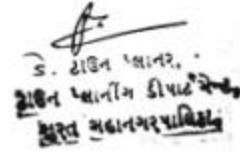 ડે. ટાઉન પ્લાનર,
ટાઉન પ્લાનીંગ ડીપાર્ટમેન્ટ,
સુરત મહાનગરપાલિકા,